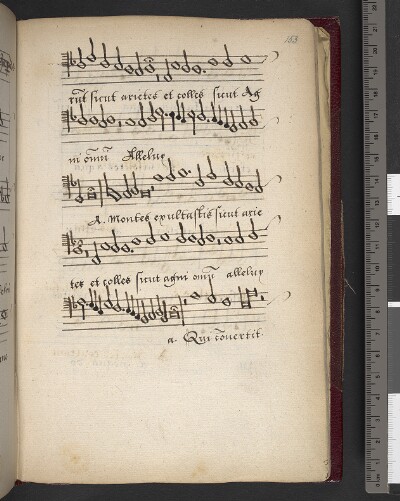 163
rūt sicut arietes et colles sicut Ag
ni oīuū Alleluy
A. Montes exultastis sicut arie
tes et colles sicut agni oīuū alleluy
a. Qui cōvertit.